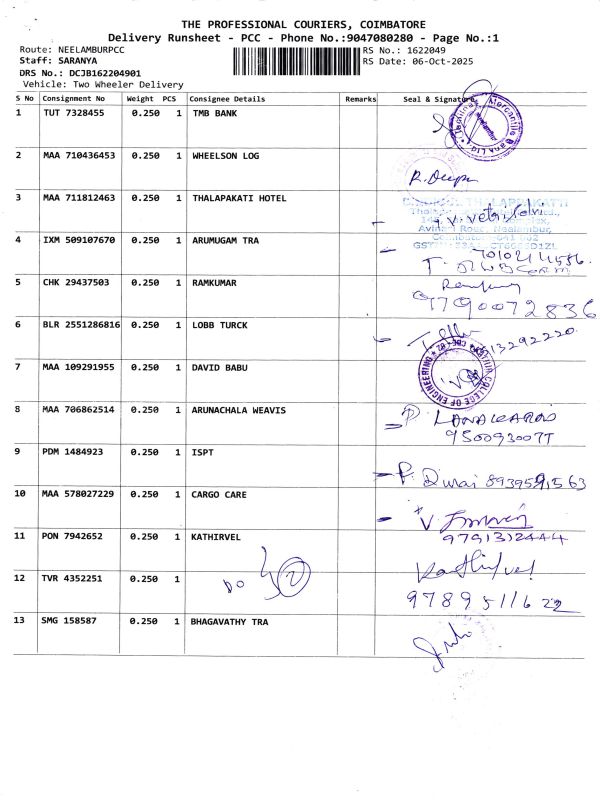 THE PROFESSIONAL COURIERS, COIMBATORE
Delivery Runsheet - PCC - Phone No.:9047080280 - Page No.:1
Route: NEELAMBURPCC
RS No.: 1622049
Staff: SARANYA
RS Date: 06-Oct-2025
DRS No.: DCJB162204901
Vehicle: Two Wheeler Delivery
S No Consignment No Weight PCS Consignee Details Remarks Seal & Signature
1 TUT 7328455 0.250 1 TMB BANK
2 MAA 710436453 0.250 1 WHEELSON LOG
R. Deepa
3 MAA 711812463 0.250 1 THALAPAKATI HOTEL
4 IXM 509107670 0.250 1 ARUMUGAM TRA
5 CHK 29437503 0.250 1 RAMKUMAR
9790072836
6 BLR 2551286816 0.250 1 LOBB TURCK
7 MAA 109291955 0.250 1 DAVID BABU
COLLEGE OF ENGINEERING
8 MAA 706862514 0.250 1 ARUNACHALA WEAVIS
9 PDM 1484923 0.250 1 ISPT
P. Durai
10 MAA 578027229 0.250 1 CARGO CARE
11 PON 7942652 0.250 1 KATHIRVEL
Kathirvel
12 TVR 4352251 0.250 1 DO
9789511622
13 SMG 158587 0.250 1 BHAGAVATHY TRA